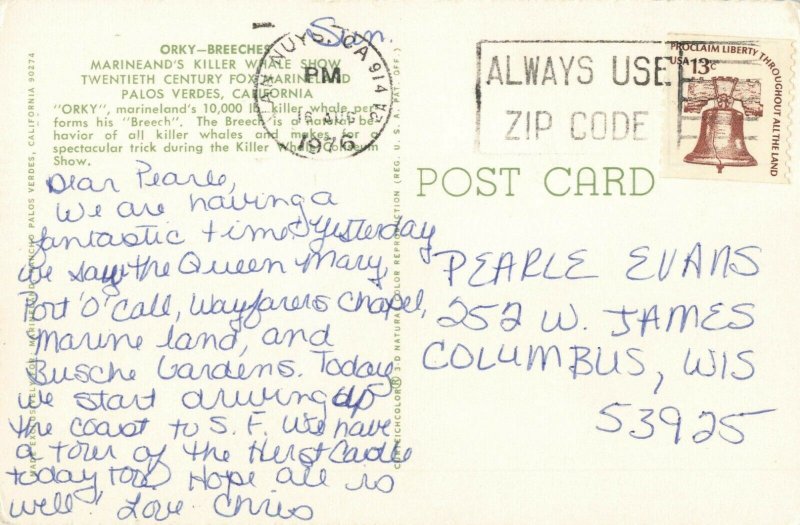 Sun.
ORKY—BREECHES
MARINEAND'S KILLER WHALE SHOW
TWENTIETH CENTURY FOX MARINELAND
PALOS VERDES, CALIFORNIA
"ORKY", marineland's 10,000 lb. killer whale per-
forms his "Breech". The Breech is a natural be-
havior of all killer whales and makes for a
spectacular trick during the Killer Whale Coliseum
Show.
Dear Pearle,
We are having a
fantastic time. Yesterday
we saw the Queen Mary,
Port 'O' Call, Wayfarers Chapel,
Marine land, and
Busche Gardens. Today
we start driving up
the coast to S. F. We have
a tour of the Herst Castle
today too. Hope all is
well! Love Chris
VAN NUYS, CA 914
PM
16 AUG
1976
ALWAYS USE
ZIP CODE
PROCLAIM LIBERTY THROUGHOUT ALL THE LAND
USA 13c
POST CARD
PEARLE EVANS
252 W. JAMES
COLUMBUS, WIS
53925
MADE EXCLUSIVELY FOR: MARINELAND, RANCHO PALOS VERDES, CALIFORNIA 90274
CURTEICHCOLOR® 3-D NATURAL COLOR REPRODUCTION (REG. U. S. A. PAT. OFF.)